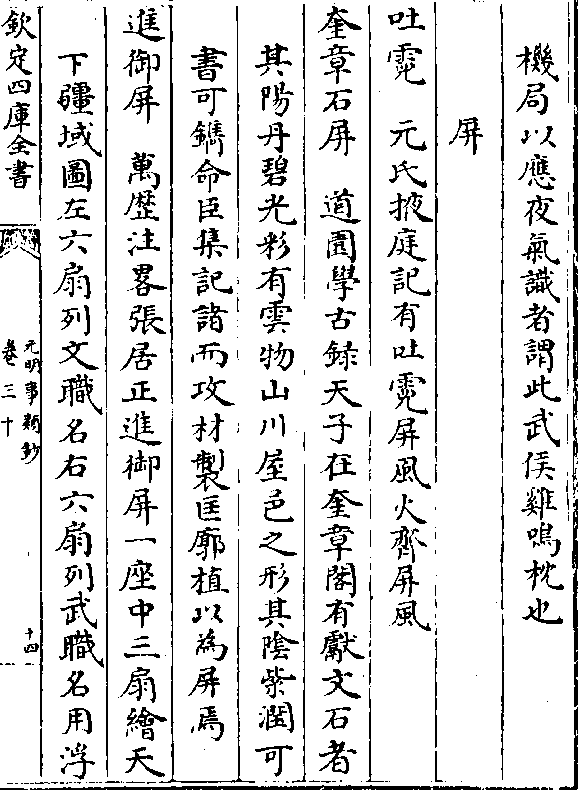 機局以應夜氣識者謂此武侯雞鳴枕也
屏
吐霓　元氏掖庭記有吐霓屏風火齊屏風
奎章石屏　道園學古録天子在奎章閣有獻文石者
其陽丹碧光彩有雲物山川屋邑之形其陰紫潤可
書可鐫命臣集記諸而攻材製匡廓植以為屏焉
進御屏　萬歴注畧張居正進御屏一座中三扇繪天
下疆域圖左六扇列文職名右六扇列武職名用浮
欽定四庫全書
元明事類鈔
卷三十
十四